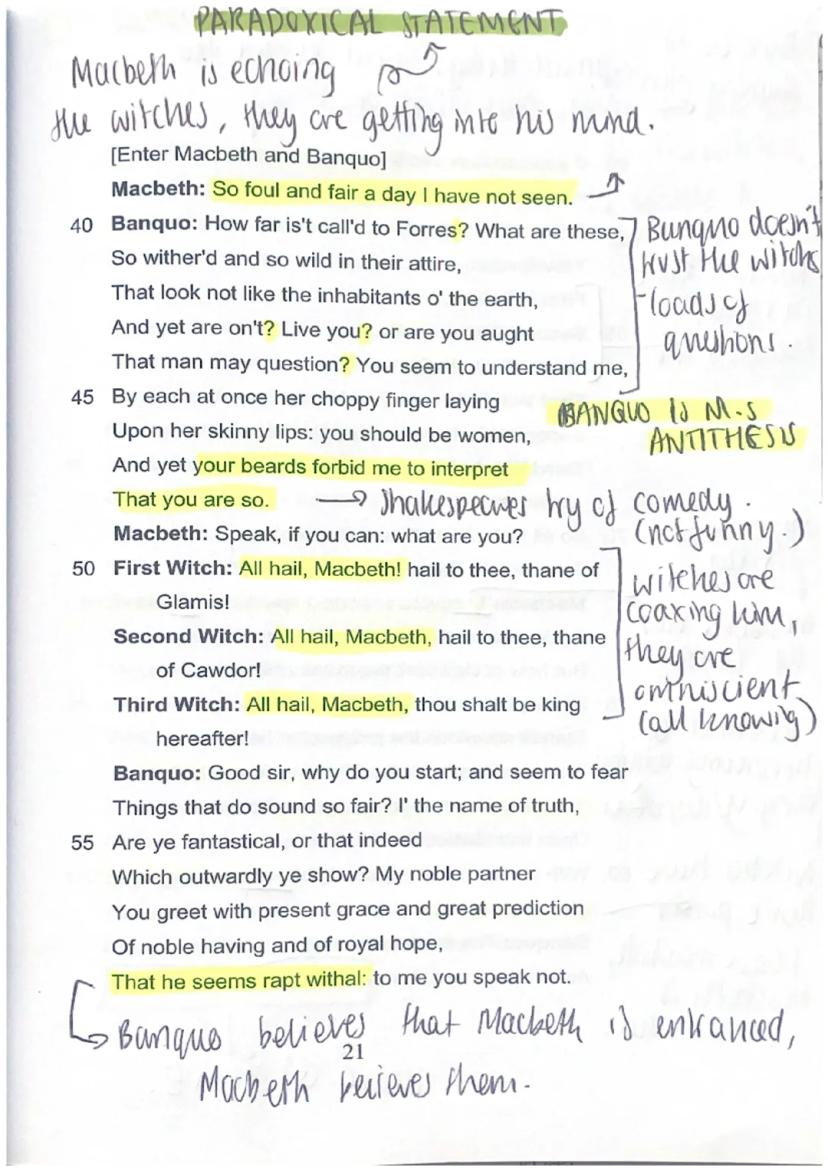 PARADOXICAL STATEMENT
Macbeth is echoing
the witches, they are getting into his mind.
[Enter Macbeth and Banquo]
Macbeth: So foul and fair a day I have not seen.
40 Banquo: How far is't call'd to Forres? What are these,
So wither'd and so wild in their attire,
That look not like the inhabitants o' the earth,
And yet are on't? Live you? or are you aught
That man may question? You seem to understand me,
Banquo doesn't
trust the witches
- loads of
questions.
45 By each at once her choppy finger laying
Upon her skinny lips: you should be women,
And yet your beards forbid me to interpret
That you are so.
BANQUO IS M.S
ANTITHESIS
Shakespeares try of comedy.
(not funny.)
Macbeth: Speak, if you can: what are you?
50 First Witch: All hail, Macbeth! hail to thee, thane of
Glamis!
Second Witch: All hail, Macbeth, hail to thee, thane
of Cawdor!
Third Witch: All hail, Macbeth, thou shalt be king
hereafter!
witches are
coaxing him,
they are
omniscient
(all knowig)
Banquo: Good sir, why do you start; and seem to fear
Things that do sound so fair? I' the name of truth,
55 Are ye fantastical, or that indeed
Which outwardly ye show? My noble partner
You greet with present grace and great prediction
Of noble having and of royal hope,
That he seems rapt withal: to me you speak not.
Banquo believes that Macbeth is entranced,
21
Macbeth believes them.